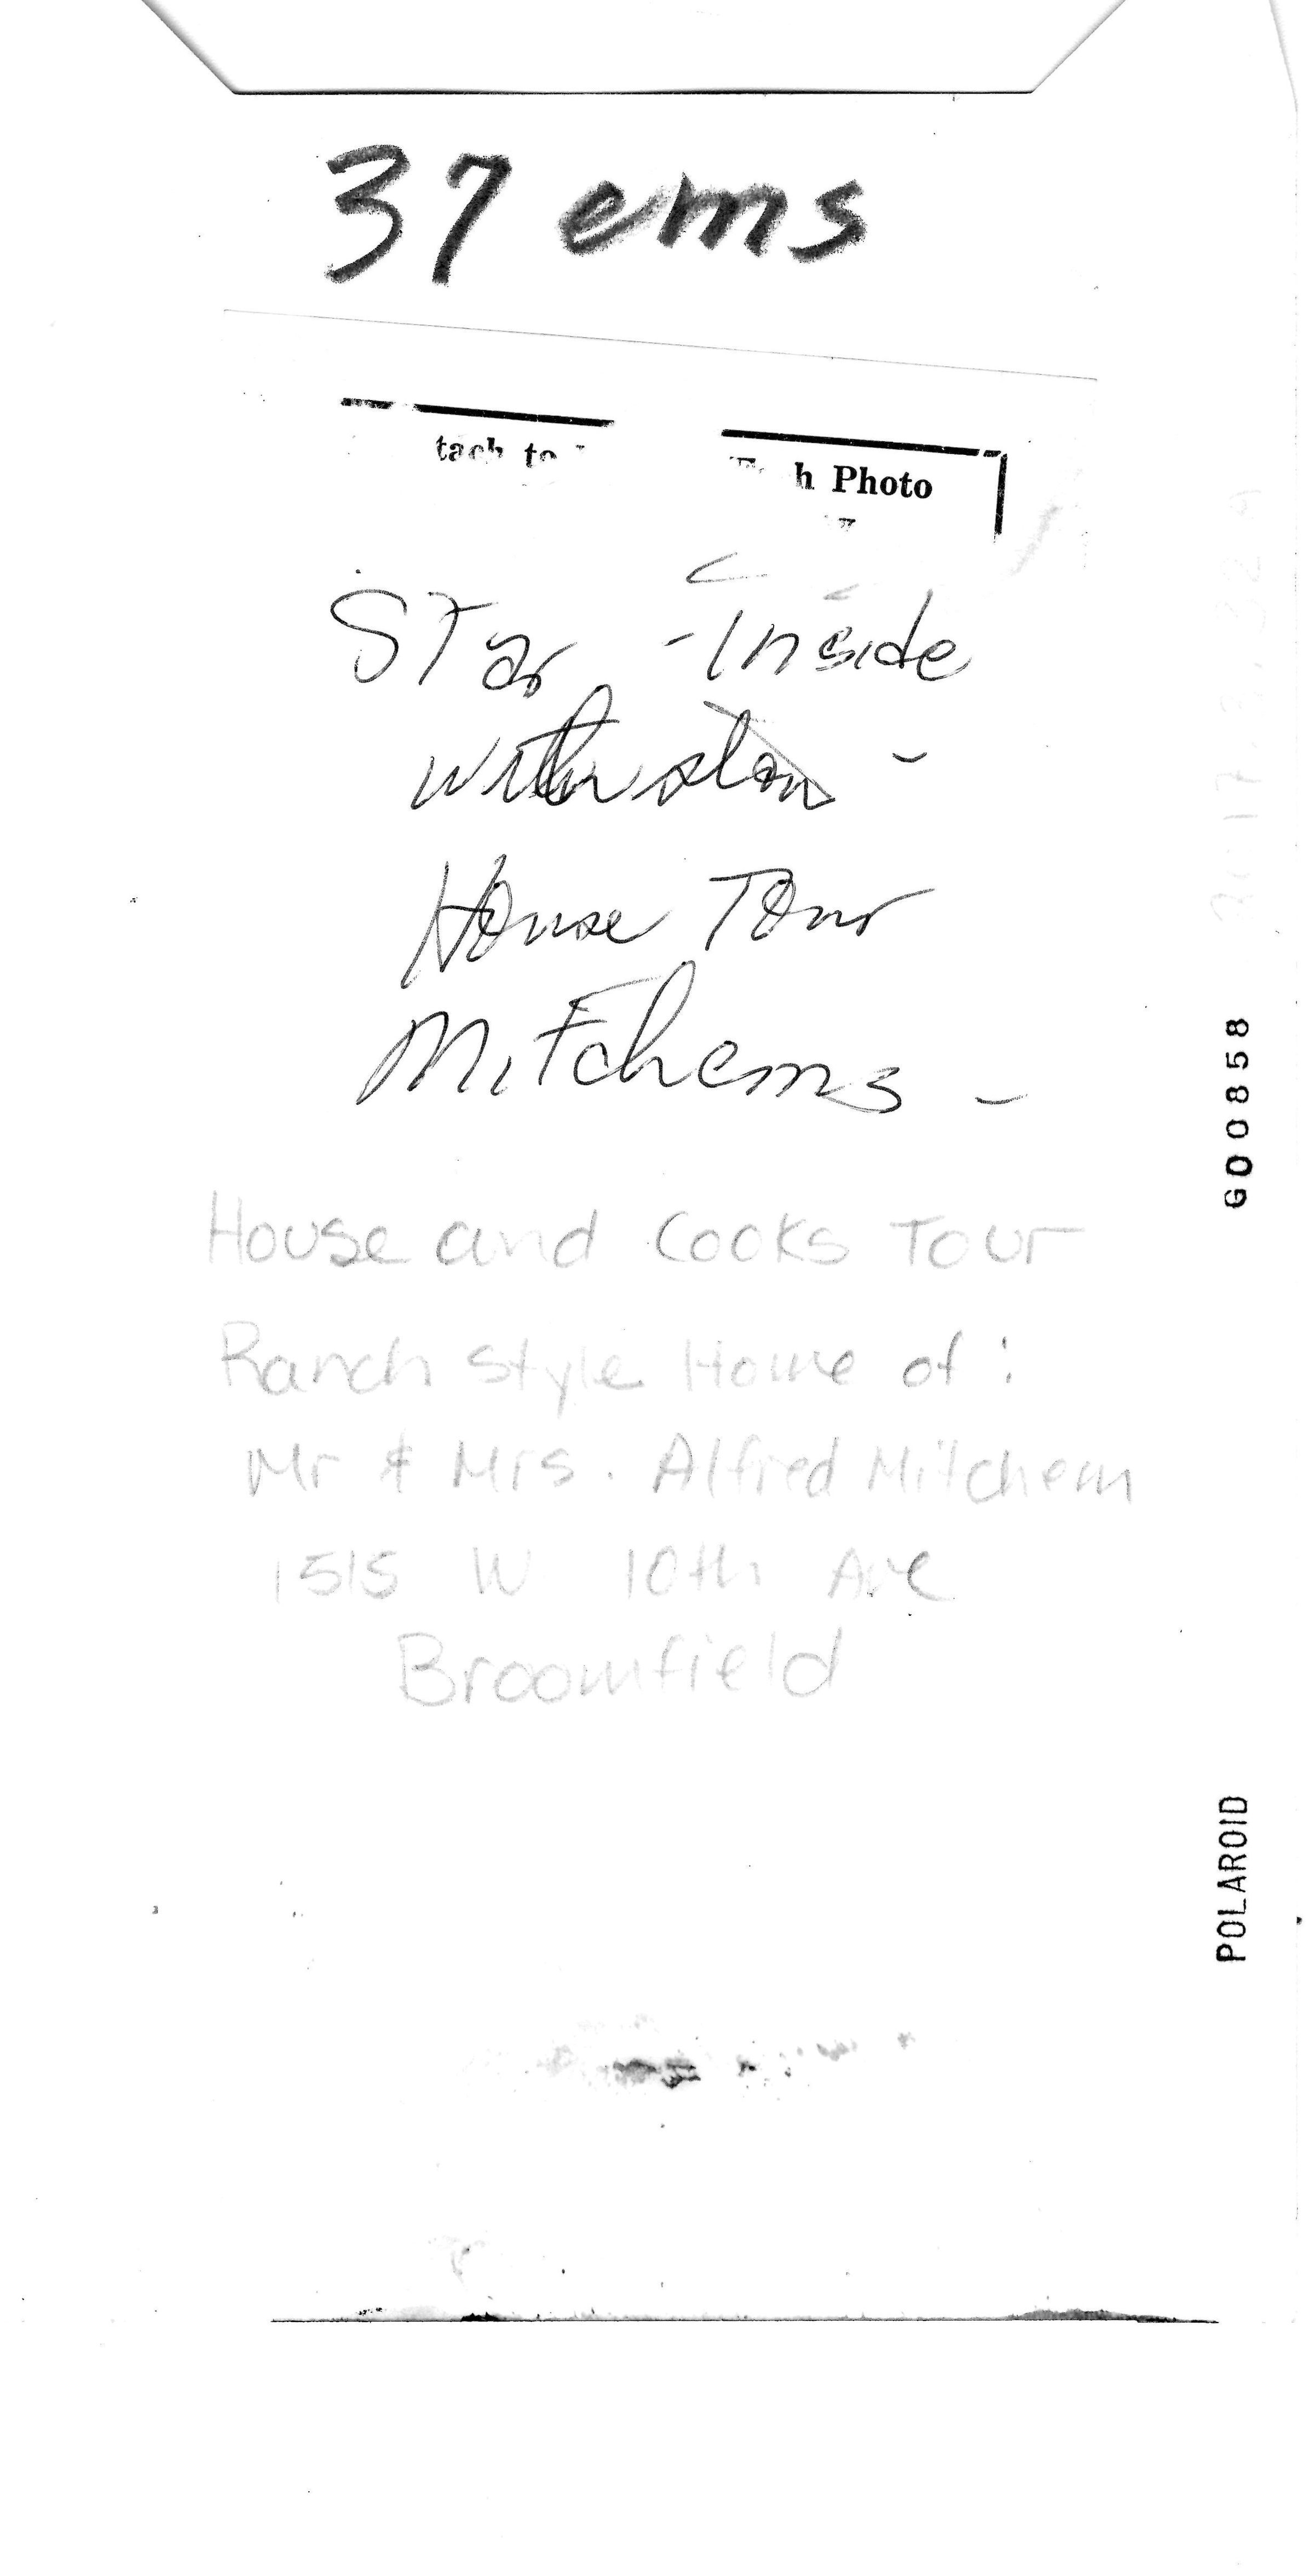 37 ems
tach to
h Photo
Star - Inside
with
House Tour
Mitchems -
House and Cooks Tour
Ranch Style Home of :
Mr & Mrs. Alfred Mitchem
1515 W 10th Ave
Broomfield
G00858
POLAROID